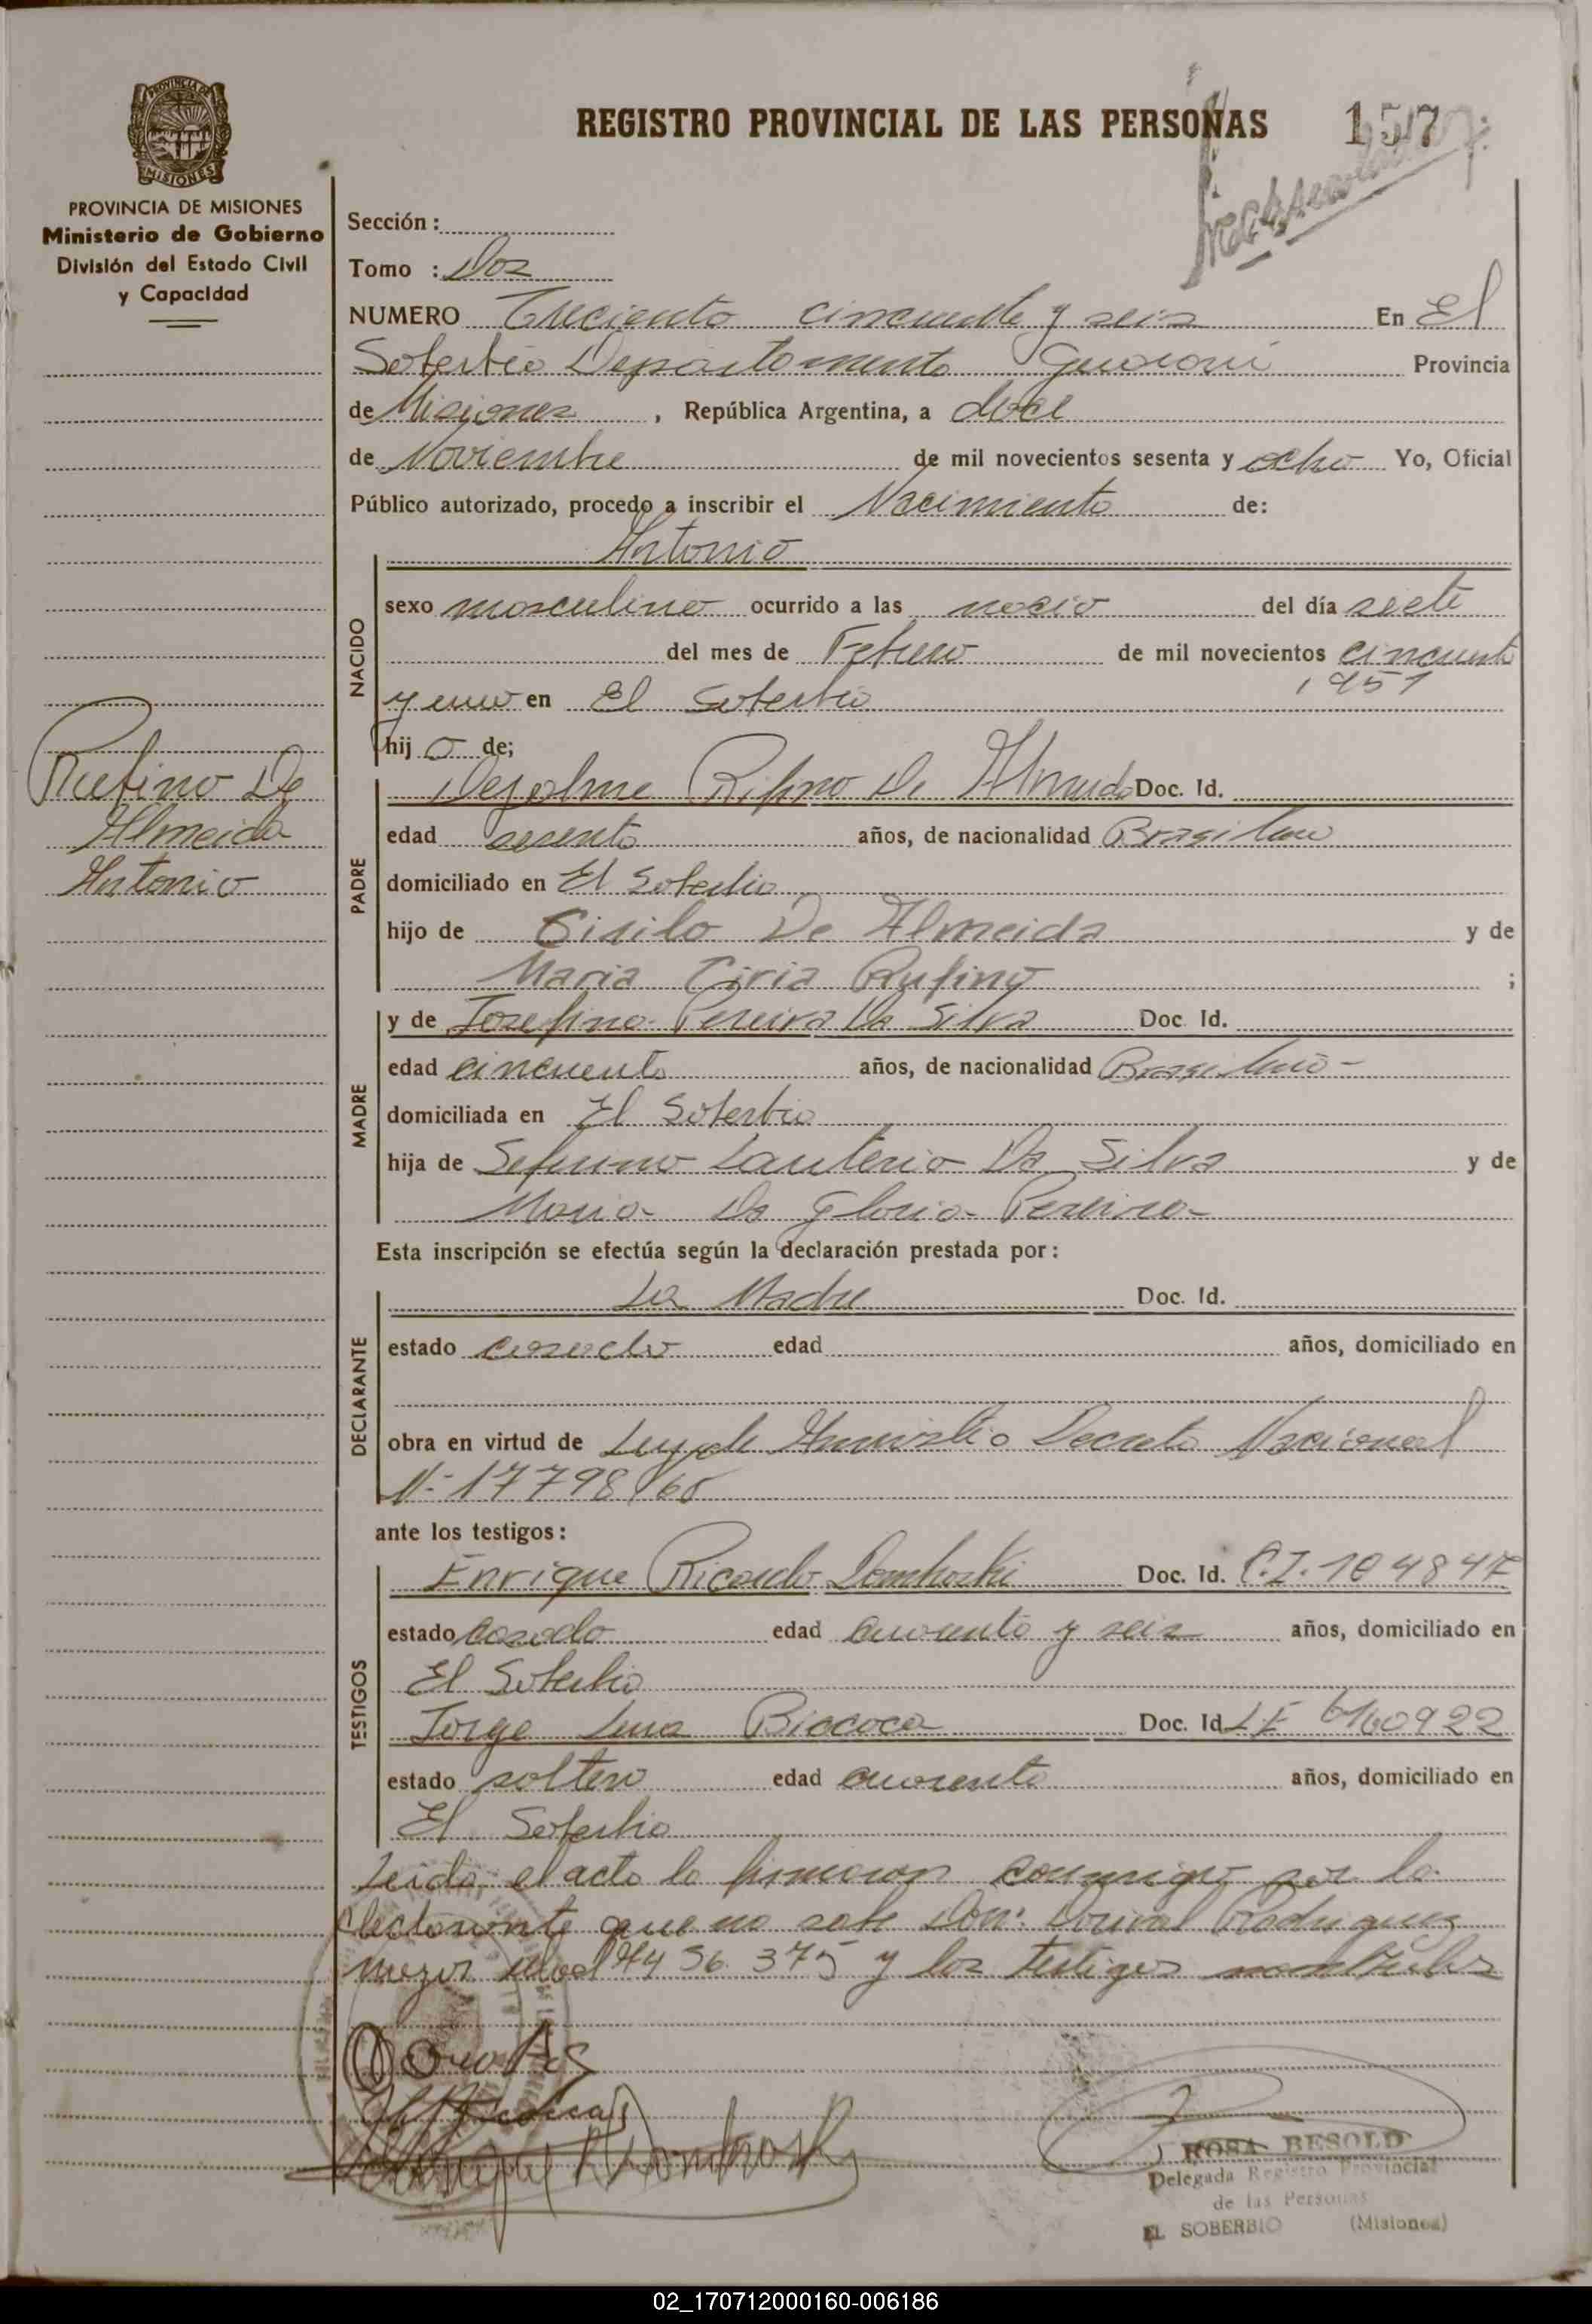 PROVINCIA DE
MISIONES
PROVINCIA DE MISIONES
Ministerio de Gobierno
División del Estado Civil
y Capacidad
REGISTRO PROVINCIAL DE LAS PERSONAS 157
Sección :
Tomo : Dos
NUMERO Treciento cincuenta y seis En El
Soberbio Departamento Guarani Provincia
de Misiones , República Argentina, a doce
de Noviembre de mil novecientos sesenta y ocho Yo, Oficial
Público autorizado, procedo a inscribir el Nacimiento de:
Antonio
NACIDO
sexo masculino ocurrido a las nacio del día siete
del mes de Febrero de mil novecientos cincuenta
1951
y uno en El Soberbio
hij o de;
Rufino De
Almeida
Antonio
PADRE
Rufino De Almeida Doc. Id.
edad sesenta años, de nacionalidad Brasilero
domiciliado en El Soberbio
hijo de De Almeida y de
Maria Ciria Rufino ;
MADRE
y de Josefina Pereira Da Silva Doc. Id.
edad cincuenta años, de nacionalidad Brasilera
domiciliada en El Soberbio
hija de Lauterio Da Silva y de
Maria Da Gloria Pereira
Esta inscripción se efectúa según la declaración prestada por :
DECLARANTE
La Madre Doc. Id.
estado casada edad años, domiciliado en
obra en virtud de Ley de Amnistia Decreto Nacional
N- 17798/68
ante los testigos :
TESTIGOS
Enrique Ricardo Domhoski Doc. Id. C.I. 104847
estado casado edad cuarenta y seis años, domiciliado en
El Soberbio
Jorge Luis Biococa Doc. Id LE 6160922
estado soltero edad cuarenta años, domiciliado en
El Soberbio
Leida el acta la firmaron conmigo por la
declarante que no sabe Don: Rodriguez
mayor edad 4436.375 y los testigos nombrados
ROSA BESOLD
Delegada Registro Provincial
de las Personas
EL SOBERBIO (Misiones)
02_170712000160-006186